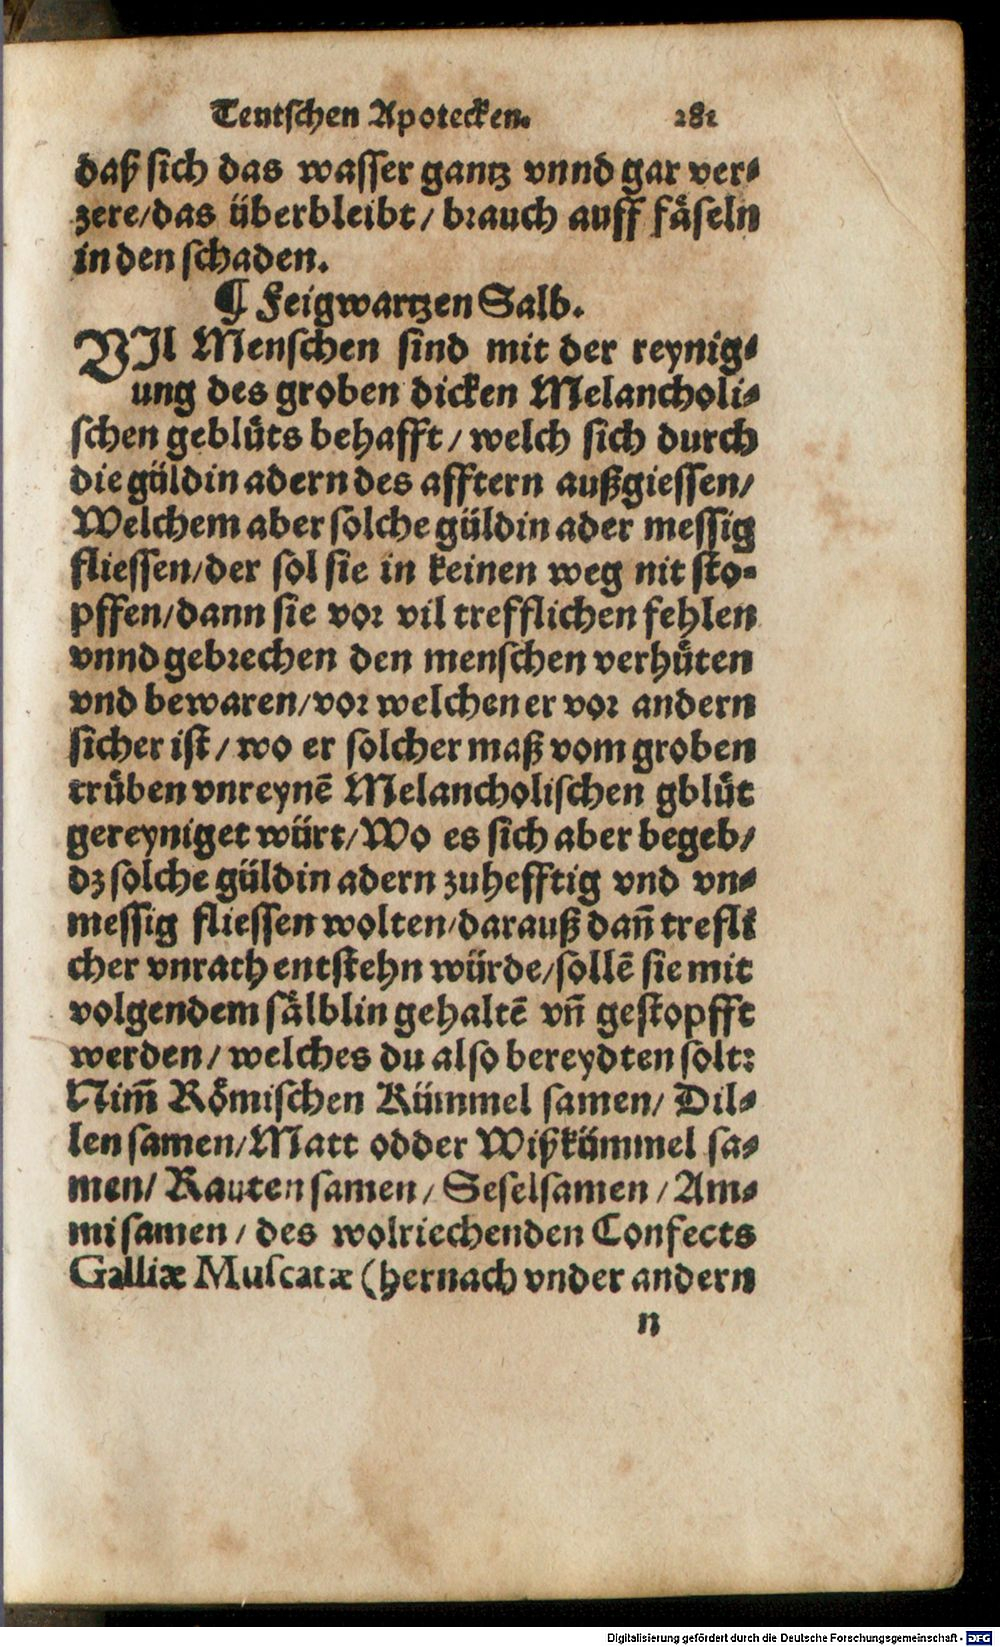 Teutschen Apotecken. 281
daß sich das wasser gantz vnnd gar ver⸗
zere/das überbleibt/ brauch auff fäseln
in den schaden.
¶ Feigwartzen Salb.
VIl Menschen sind mit der reynig⸗
ung des groben dicken Melancholi⸗
schen geblüts behafft/ welch sich durch
die güldin adern des afftern außgiessen/
Welchem aber solche güldin ader messig
fliessen/der sol sie in keinen weg nit sto⸗
pffen/dann sie vor vil trefflichen fehlen
vnnd gebrechen den menschen verhüten
vnd bewaren/vor welchen er vor andern
sicher ist/ wo er solcher maß vom groben
trüben vnreynē Melancholischen gblüt
gereyniget würt/Wo es sich aber begeb/
dz solche güldin adern zuhefftig vnd vn⸗
messig fliessen wolten/darauß dañ trefli
cher vnrath entstehn würde/sollē sie mit
volgendem sälblin gehaltē vñ gestopfft
werden/ welches du also bereydten solt:
Nim̄ Römischen Kümmel samen/ Dil⸗
len samen/Matt odder Wißkümmel sa⸗
men/ Rauten samen/ Seselsamen/ Am⸗
mi samen/ des wolriechenden Confects
Galliæ Muscatæ (hernach vnder andern
n
Digitalisierung gefördert durch die Deutsche Forschungsgemeinschaft - DFG